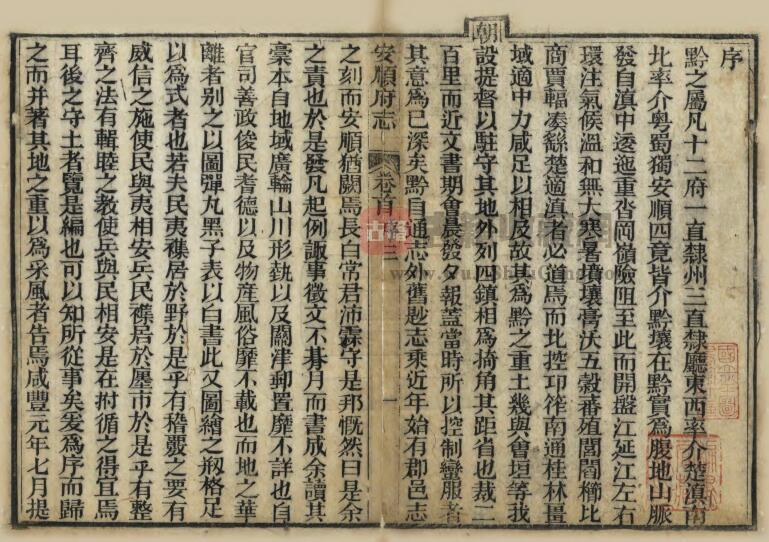 朝
序
黔之屬凡十二府一直隸州三直隸廳東西率介楚滇南
北率介粵蜀獨安順四竟皆介黔壤在黔實爲腹地山脈
發自滇中透迤重沓岡嶺險阻至此而開盤江延江左右
環注氣候溫和無大寒暑墳壤膏沃五穀蕃殖閭閻櫛比
商賈輻湊繇楚適滇者必道焉而北控卭筰南通桂林畺
域適中力咸足以相及故其爲黔之重土幾與會垣等我
設提督以駐守其地外列四鎮相爲掎角其距省也裁二
百里而近文書期會晨發夕報蓋當時所以控制蠻服者
其意爲已深矣黔自通志外舊尟志乘近年始有郡邑志
安順府志
卷首
一
之刻而安順猶闕焉長白常君沛霖守是邦慨然曰是余
之責也於是發凡起例諏事徵文不朞月而書成余讀其
稾本自地域廣輪山川形埶以及關津郵置靡不詳也自
官司善政俊民耆德以及物產風俗靡不載也而地之華
離者別之以圖彈丸黑子表以白書此又圖繪之剏格足
以爲式者也若夫民夷襍居於野於是乎有稽覈之要有
威信之施使民與夷相安兵民襍居於廛市於是乎有整
齊之法有輯睦之教使兵與民相安是在拊循之得宜焉
耳後之守土者覽是編也可以知所從事矣爰爲序而歸
之而并著其地之重以爲采風者告焉咸豐元年七月提